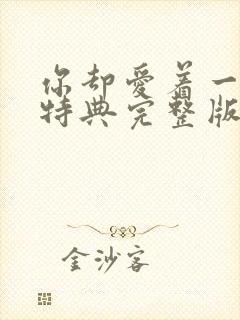 你却爱着一
特典完整版
金沙客